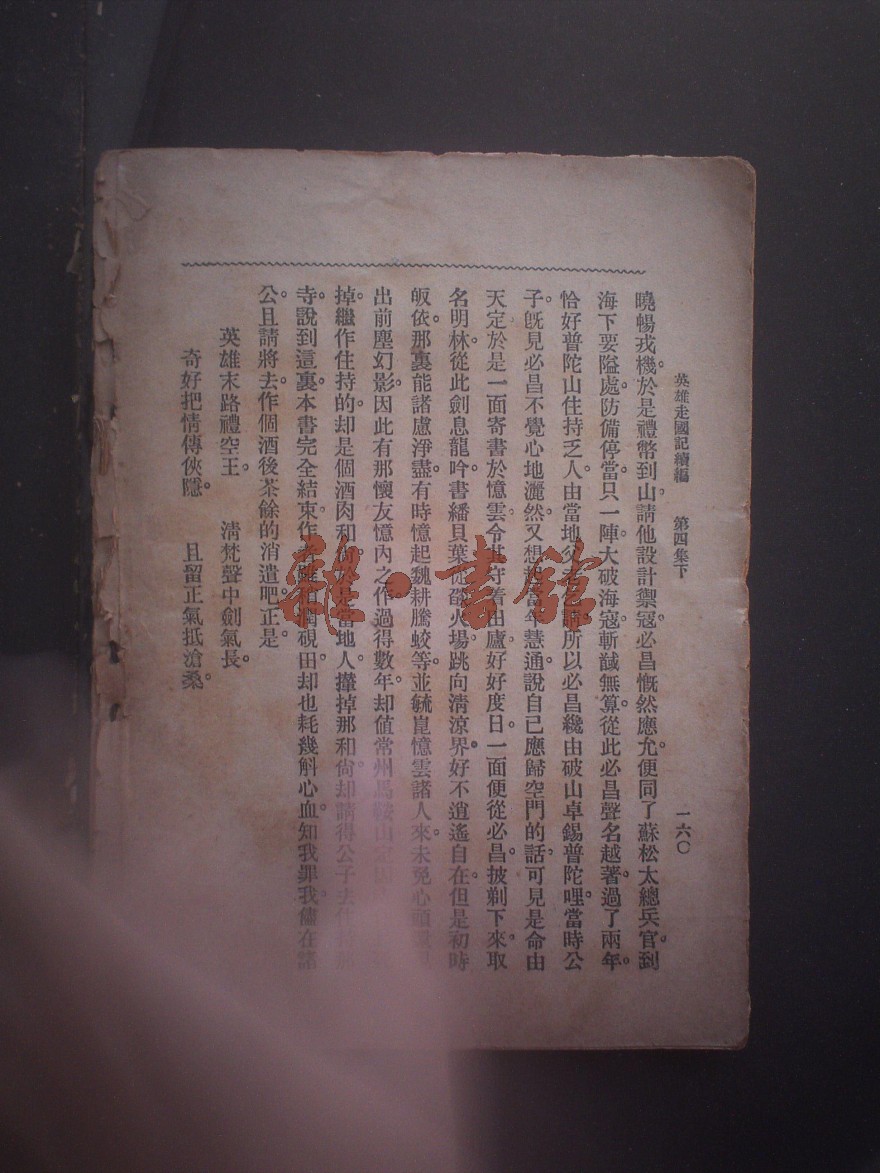 英雄走國記續編 第四集下 一六〇
曉暢戎機。於是禮幣到山。請他設計禦寇。必昌慨然應允。便同了蘇松太總兵官。到
海下要隘處。防備停當。只一陣。大破海寇。斬馘無算。從此必昌聲名越著。過了兩年。
恰好普陀山住持乏人。由當地父老公請。所以必昌纔由破山卓錫普陀哩。當時公
子。旣見必昌。不覺心地灑然。又想起當年慧通說自己應歸空門的話。可見是命由
天定。於是一面寄書於憶雲。令其守着由廬。好好度日。一面便從必昌披剃下來。取
名明林。從此劍息龍吟。書繙貝葉。從劭火場。跳向淸涼界。好不逍遙自在。但是初時
皈依。那裏能諸慮淨盡。有時憶起魏耕騰蛟等。並毓崑憶雲諸人來。未免心頭
出前塵幻影。因此有那懷友憶內之作。過得數年。却値常州馬鞍山
掉。繼作住持的。却是個酒肉和尙。於是當地人攆掉那和尙。却請得公子去住
寺。說到這裏。本書完全結束。作者雖和潤硯田。却也耗幾斛心血。知我罪我。儘在諸
公。且請將去作個酒後茶餘的消遣吧。正是。
英雄末路禮空王。 淸梵聲中劍氣長。
奇好把情傳俠隱。 且留正氣抵滄桑。
雜·書館